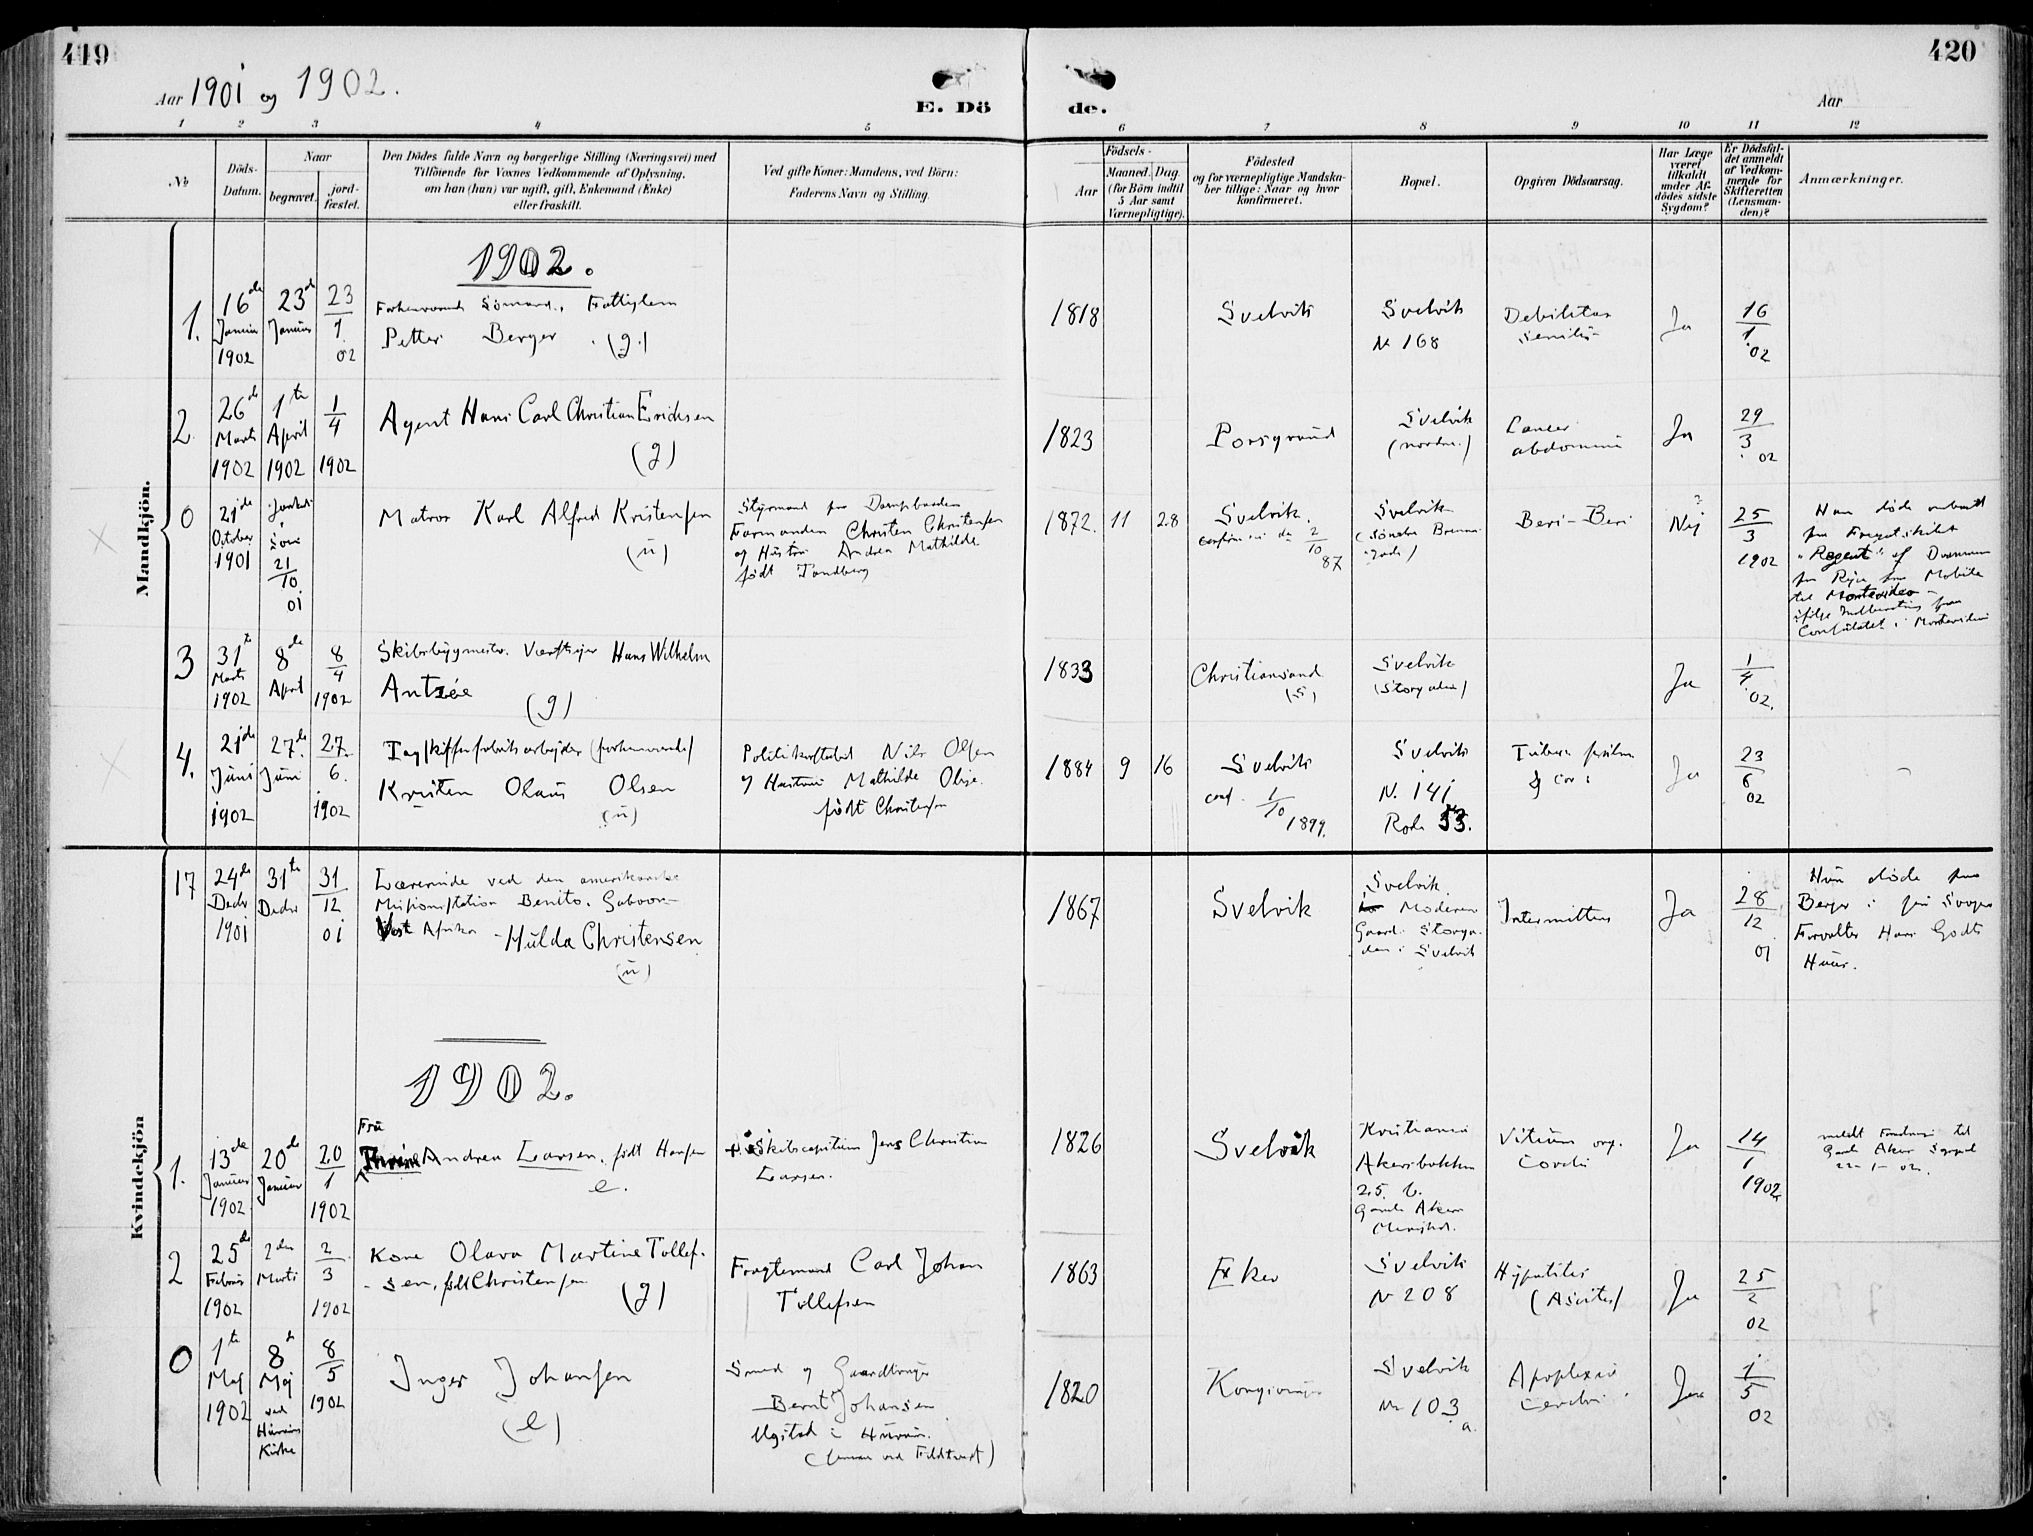 419
420
Aar 1901 og 1902.
E. Dö
de.
Aar
1 2 3 4 5 6 7 8 9 10 11 12
No
Döds-
Datum.
Naar
begravet.
jord-
fæstet.
Den Dödes fulde Navn og borgerlige Stilling (Næringsvei) med
Tilföiende for Voxnes Vedkommende af Oplysning,
om han (hun) var ugift, gift, Enkemand (Enke)
eller fraskilt.
Ved gifte Koner: Mandens, ved Börn:
Faderens Navn og Stilling.
Födsels-
Aar
Maaned. Dag.
(for Börn indtil
5 Aar samt
Værnepligtige).
Födested
og for værnepligtige Mandska-
ber tillige: Naar og hvor
konfirmeret.
Bopæl.
Opgiven Dödsaarsag.
Har Læge
været
tilkaldt
under Af-
dödes sidste
Sygdom?
Er Dödsfal-
det anmeldt
af Vedkom-
mende for
Skifteretten
(Lensman-
den)?
Anmærkninger.
Mandkjön.
1902.
1.
16de
Januar
1902
23de
Januar
23
1
02
Forhenværende Sömand, Fattiglem
Petter Berger (g.)
1818
Svelvik
Svelvik
No 168
Debilitas
senilis
Ja
16
1
02
2.
26de
Marts
1902
1te
April
1902
1
4
1902
Agent Hans Carl Christian Ericksen
(g)
1823
Porsgrund
Svelvik
(nordre)
Cancer
abdominis
Ja
29
3
02
0
21de
October
1901
21
10
01
Matros Karl Alfred Kristensen
(u)
Styrmand paa
Formanden Christen Christensen
og Hustru Andrea Mathilde
födt Tandberg
1872. 11 28
Svelvik.
2
10
87
Svelvik
(Söndre
Beri-Beri
Nej
25
3
1902
Han döde ombord
paa Fregatskibet
"Regent" af Drammen
paa Rejse fra Mobile
til Montevideo -
ifölge Indberetning fra
Consulatet i Montevideo
3
31te
Marts
1902
8de
April
8
4
1902
Skibsbygmester. Værftsejer Hans Wilhelm
Antzée
(g)
1833
Christiansand
(S)
Svelvik
(Storgaden)
Ja
1
4
02.
4.
21de
Juni
1902
27de
Juni
27
6.
1902
Tagskiffer fabriksarbejder (forhenværende)
Kristen Olaus Olsen
(u)
Politikonstabel Nils Olsen
og Hustru Mathilde
födt Christensen
1884 9 16
Svelvik
conf. 1
10
1899.
Svelvik
N. 141
Rode 53.
Ja
23
6
02
Kvindekjön
17
24de
Decbr
1901
31te
Decbr
31
12
01
Lærerinde ved den amerikanske
Missionsstation Benito. Gaboon
Vest Afrika - Hulda Christensen
(u)
1867
Svelvik
Svelvik.
Moderens
Gaard. Storga-
den i Svelvik
Intermittens
Ja
28
12
01
Hun döde paa
Berger i
Forvalter Hans Godts
Huus.
1902.
1.
13de
Januar
1902
20de
Januar
20
1
1902
Fru
Andrea Larsen, födt Hansen
e.
Skibscapitain Jens Christian
Larsen.
1826
Svelvik
Kristiania
Akersbakken
25 b.
Gamle Akers
Menighed.
Vitium org.
cordis
Ja
14
1
1902
meldt til
Gamle Aker Sogneprest
22-1-02.
2
25de
Februar
1902
2den
Marts
2
3
1902
Kone Olava Martine Tollef-
sen, födt Christensen
(g)
Fragtemand Carl Johan
Tollefsen
1863
Eker
Svelvik
No 208
Hepatitis
(Ascites)
Ja
25
2
02
0
1te
Maj
1902
8de
Maj
ved
Hurum
Kirke
8
5
1902
Inger Johansen
(e)
Smed og Gaardbruger
Bernt Johansen
i Hurum.
1820
Kongsvinger
Svelvik
No 103
a.
Apoplexia
cerebri
Ja
1
5
02